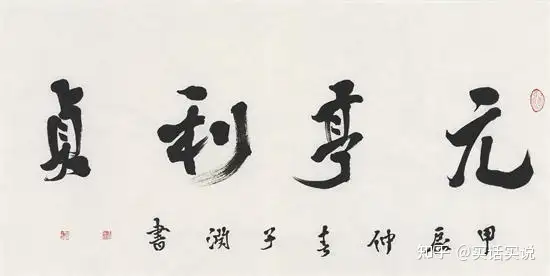 元亨利貞
甲辰仲春子渊書
知乎 @实话实说